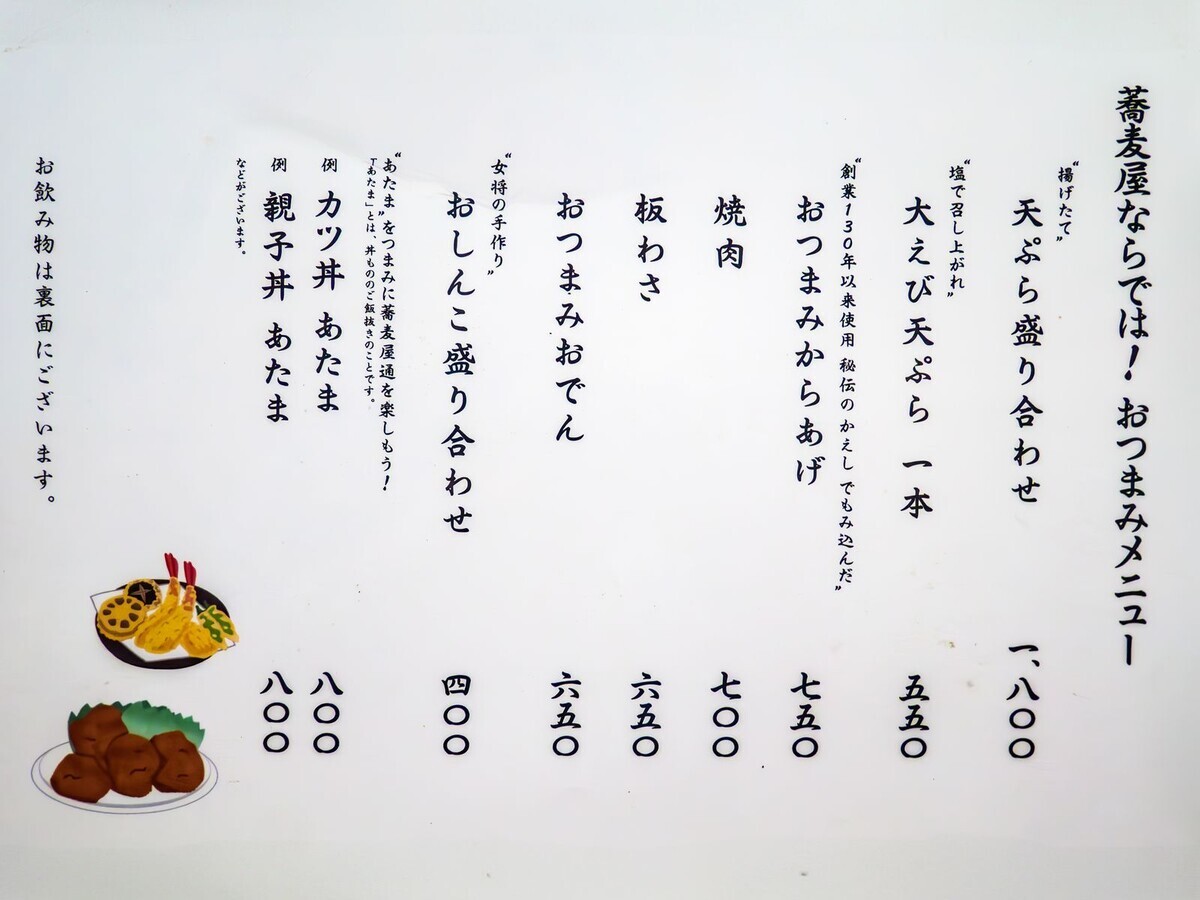 蕎麦屋ならでは！おつまみメニュー
“揚げたて”
天ぷら盛り合わせ 一、八〇〇
“塩で召し上がれ”
大えび天ぷら 一本 五五〇
“創業130年以来使用 秘伝の かえし でもみ込んだ”
おつまみからあげ 七五〇
焼肉 七〇〇
板わさ 六五〇
おつまみおでん 六五〇
“女将の手作り”
おしんこ盛り合わせ 四〇〇
“あたま”をつまみに蕎麦屋通を楽しもう！
「あたま」とは、丼もののご飯抜きのことです。
例 カツ丼 あたま 八〇〇
例 親子丼 あたま 八〇〇
などがございます。
お飲み物は裏面にございます。